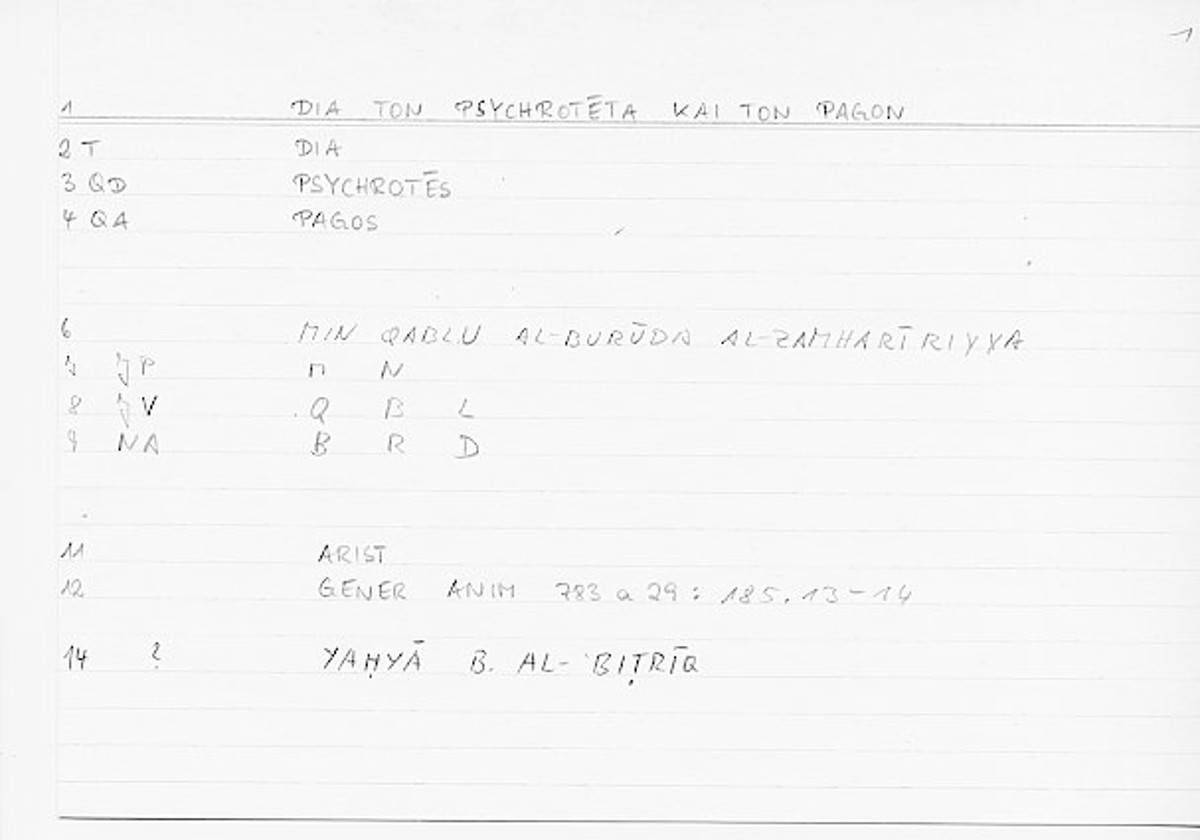 1
1 DIA TON PSYCHROTĒTA KAI TON PAGON
2 T DIA
3 QD PSYCHROTĒS
4 QA PAGOS
6 MIN QABLU AL-BURŪDA AL-ZAMHARĪRIYYA
P M N
8 V Q B L
9 NA B R D
11 ARIST
12 GENER ANIM 783 a 29 : 185.13-14
14 ? YAḤYĀ B. AL-BIṬRĪQ